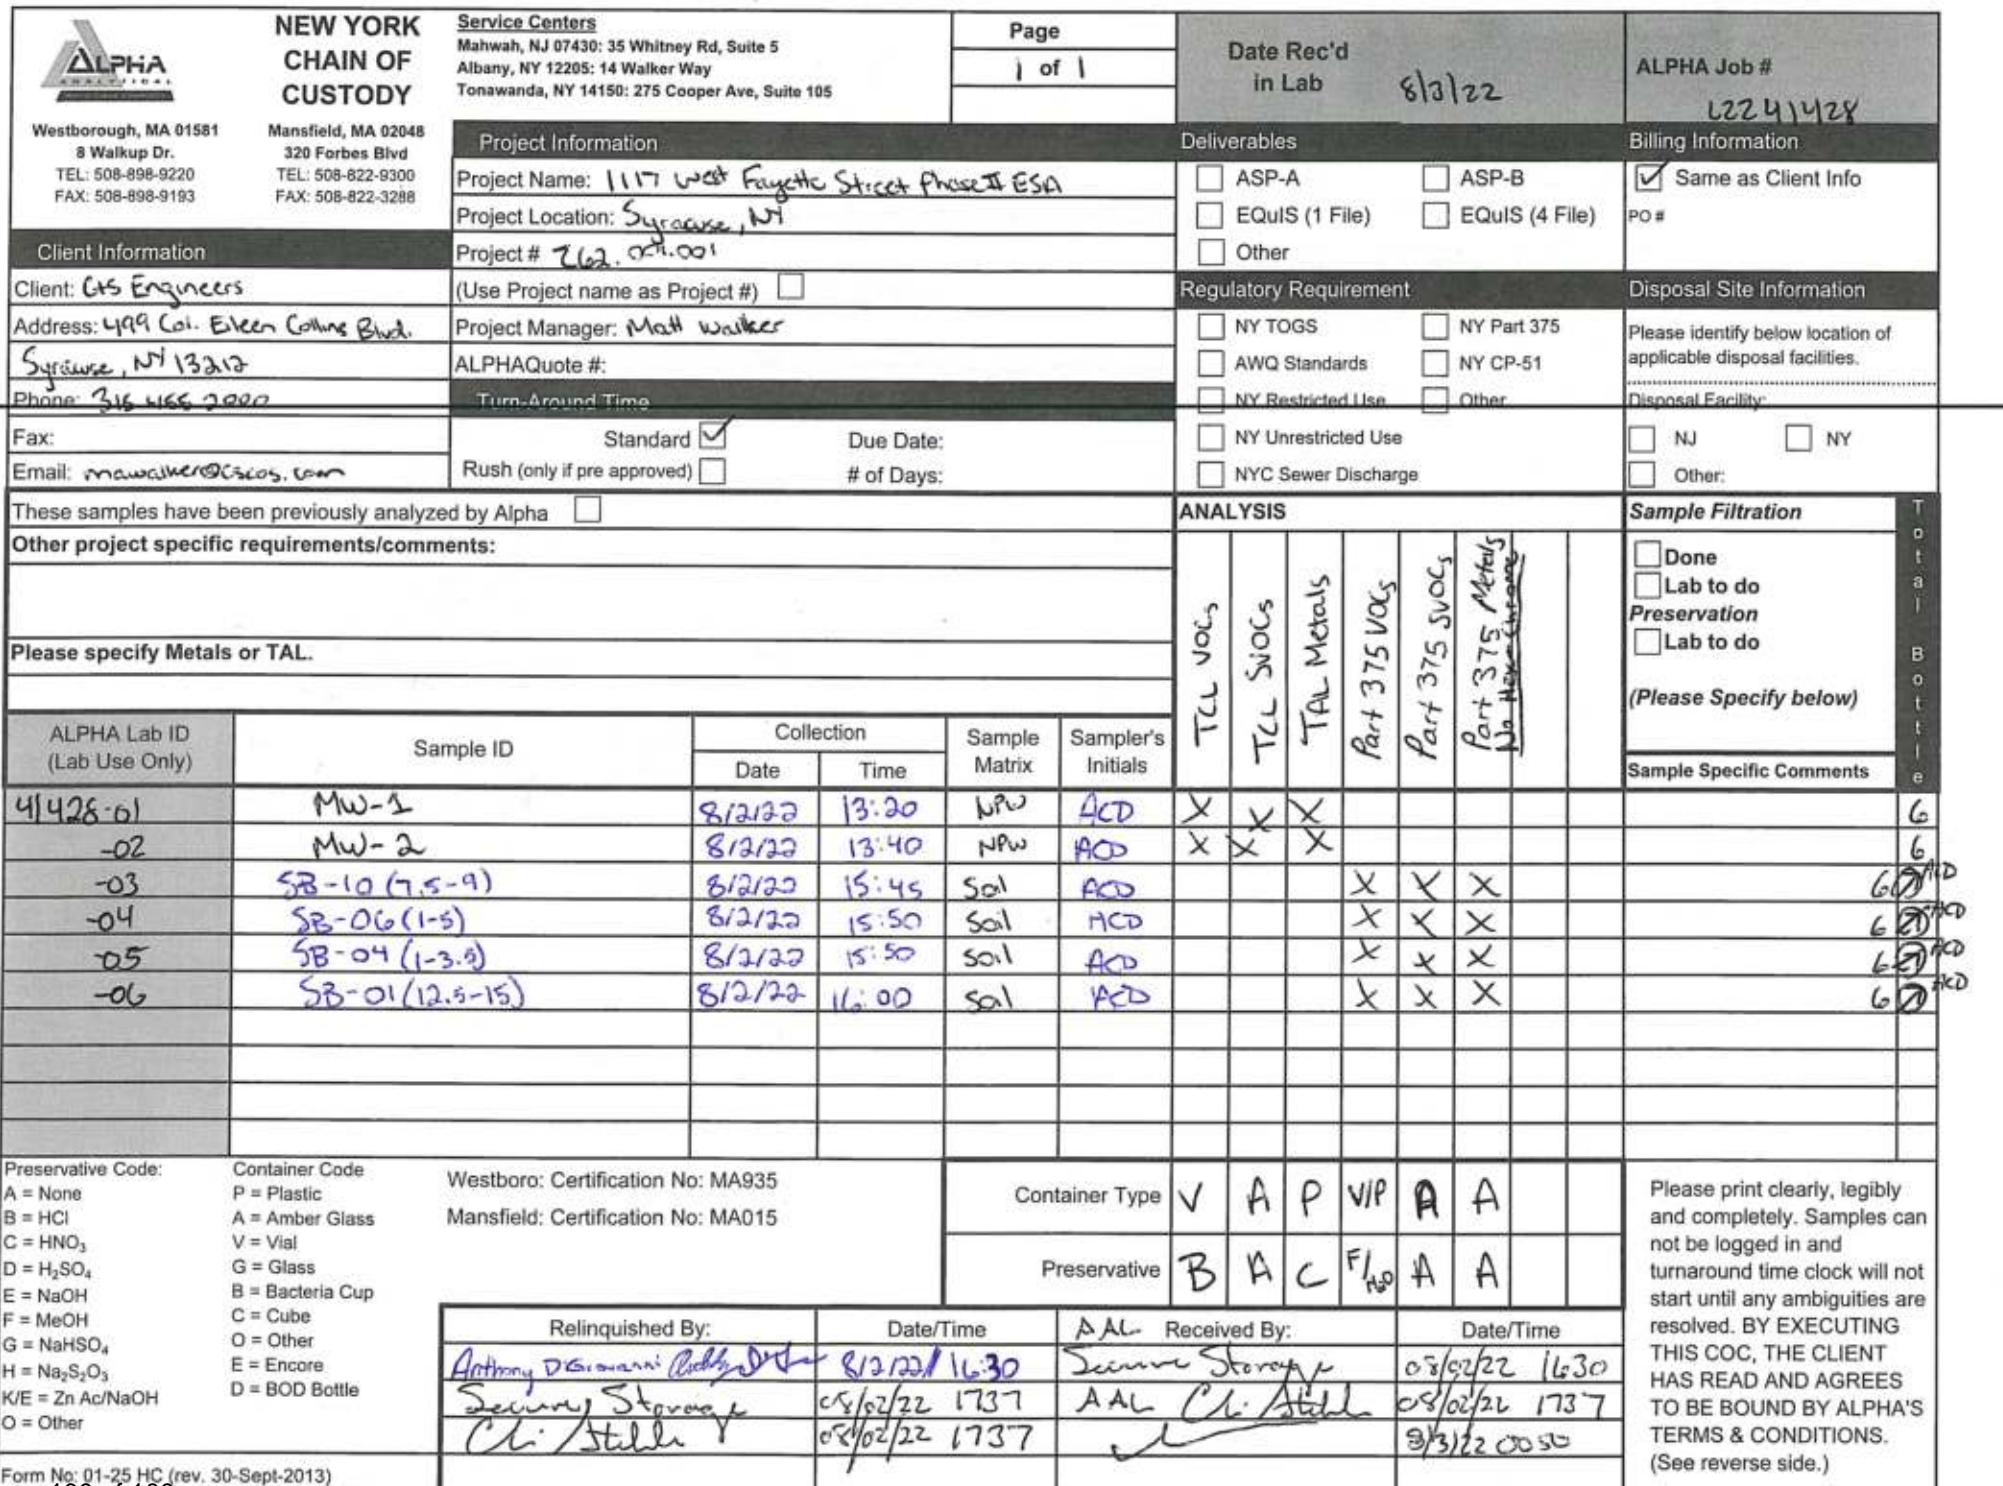 ALPHA
ANALYTICAL
NEW YORK
CHAIN OF
CUSTODY
Westborough, MA 01581
8 Walkup Dr.
TEL: 508-898-9220
FAX: 508-898-9193
Mansfield, MA 02048
320 Forbes Blvd
TEL: 508-822-9300
FAX: 508-822-3288
Service Centers
Mahwah, NJ 07430: 35 Whitney Rd, Suite 5
Albany, NY 12205: 14 Walker Way
Tonawanda, NY 14150: 275 Cooper Ave, Suite 105
Page
1 of 1
Date Rec'd
in Lab 8/3/22
ALPHA Job #
L2241428
Project Information
Project Name: 1117 West Fayette Street Phase II ESA
Project Location: Syracuse, NY
Project #
(Use Project name as Project #)
Project Manager: Matt Walker
ALPHAQuote #:
Turn-Around Time
Standard ✓ Due Date:
Rush (only if pre approved) # of Days:
Client Information
Client: C+S Engineers
Address: 499 Col. Eileen Collins Blvd.
Syracuse, NY 13212
Phone: 315 455 2000
Fax:
Email: mawalker@cscos.com
Deliverables
ASP-A ASP-B
EQuIS (1 File) EQuIS (4 File)
Other
Regulatory Requirement
NY TOGS NY Part 375
AWQ Standards NY CP-51
NY Restricted Use Other
NY Unrestricted Use
NYC Sewer Discharge
Billing Information
✓ Same as Client Info
PO #
Disposal Site Information
Please identify below location of
applicable disposal facilities.
Disposal Facility:
NJ NY
Other:
These samples have been previously analyzed by Alpha
Other project specific requirements/comments:
Please specify Metals or TAL.
ANALYSIS
TCL VOCs
TCL SVOCs
TAL Metals
Part 375 VOCs
Part 375 SVOCs
Part 375 Metals
No Hexa-Chrome
Sample Filtration
Done
Lab to do
Preservation
Lab to do
(Please Specify below)
Total Bottle
ALPHA Lab ID
(Lab Use Only)
Sample ID
Collection
Date Time
Sample
Matrix
Sampler's
Initials
Sample Specific Comments
41428-01 MW-1 8/2/22 13:20 NPW ACD X X X 6
-02 MW-2 8/2/22 13:40 NPW ACD X X X 6
-03 SB-10 (7.5-9) 8/2/22 15:45 Soil ACD X X X 6 ACD
-04 SB-06 (1-5) 8/2/22 15:50 Soil ACD X X X 6 ACD
-05 SB-04 (1-3.5) 8/2/22 15:50 Soil ACD X X X 6 ACD
-06 SB-01 (12.5-15) 8/2/22 16:00 Soil ACD X X X 6 ACD
Preservative Code:
A = None
B = HCl
C = HNO₃
D = H₂SO₄
E = NaOH
F = MeOH
G = NaHSO₄
H = Na₂S₂O₃
K/E = Zn Ac/NaOH
O = Other
Container Code
P = Plastic
A = Amber Glass
V = Vial
G = Glass
B = Bacteria Cup
C = Cube
O = Other
E = Encore
D = BOD Bottle
Westboro: Certification No: MA935
Mansfield: Certification No: MA015
Container Type V A P V/P A A
Preservative B A C F/H₂O A A
Relinquished By: Date/Time AAL Received By: Date/Time
Anthony DiGiovanni 8/2/22 16:30 Secure Storage 08/02/22 1630
Secure Storage 08/02/22 1737 AAL 08/02/22 1737
08/02/22 1737 8/3/22 0050
Please print clearly, legibly
and completely. Samples can
not be logged in and
turnaround time clock will not
start until any ambiguities are
resolved. BY EXECUTING
THIS COC, THE CLIENT
HAS READ AND AGREES
TO BE BOUND BY ALPHA'S
TERMS & CONDITIONS.
(See reverse side.)
Form No: 01-25 HC (rev. 30-Sept-2013)